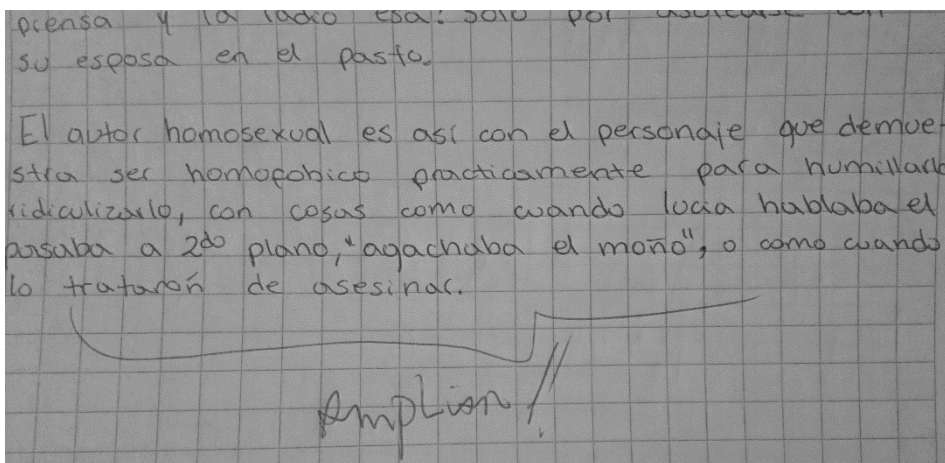 piensa y la radio esa! solo por asolearse con
su esposa en el pasto.
El autor homosexual es así con el personaje que demue
stra ser homofobico practicamente para humillarl
ridiculizarlo, con cosas como cuando lucia hablaba el
pasaba a 2do plano, "agachaba el moño", o como cuando
lo trataron de asesinar.